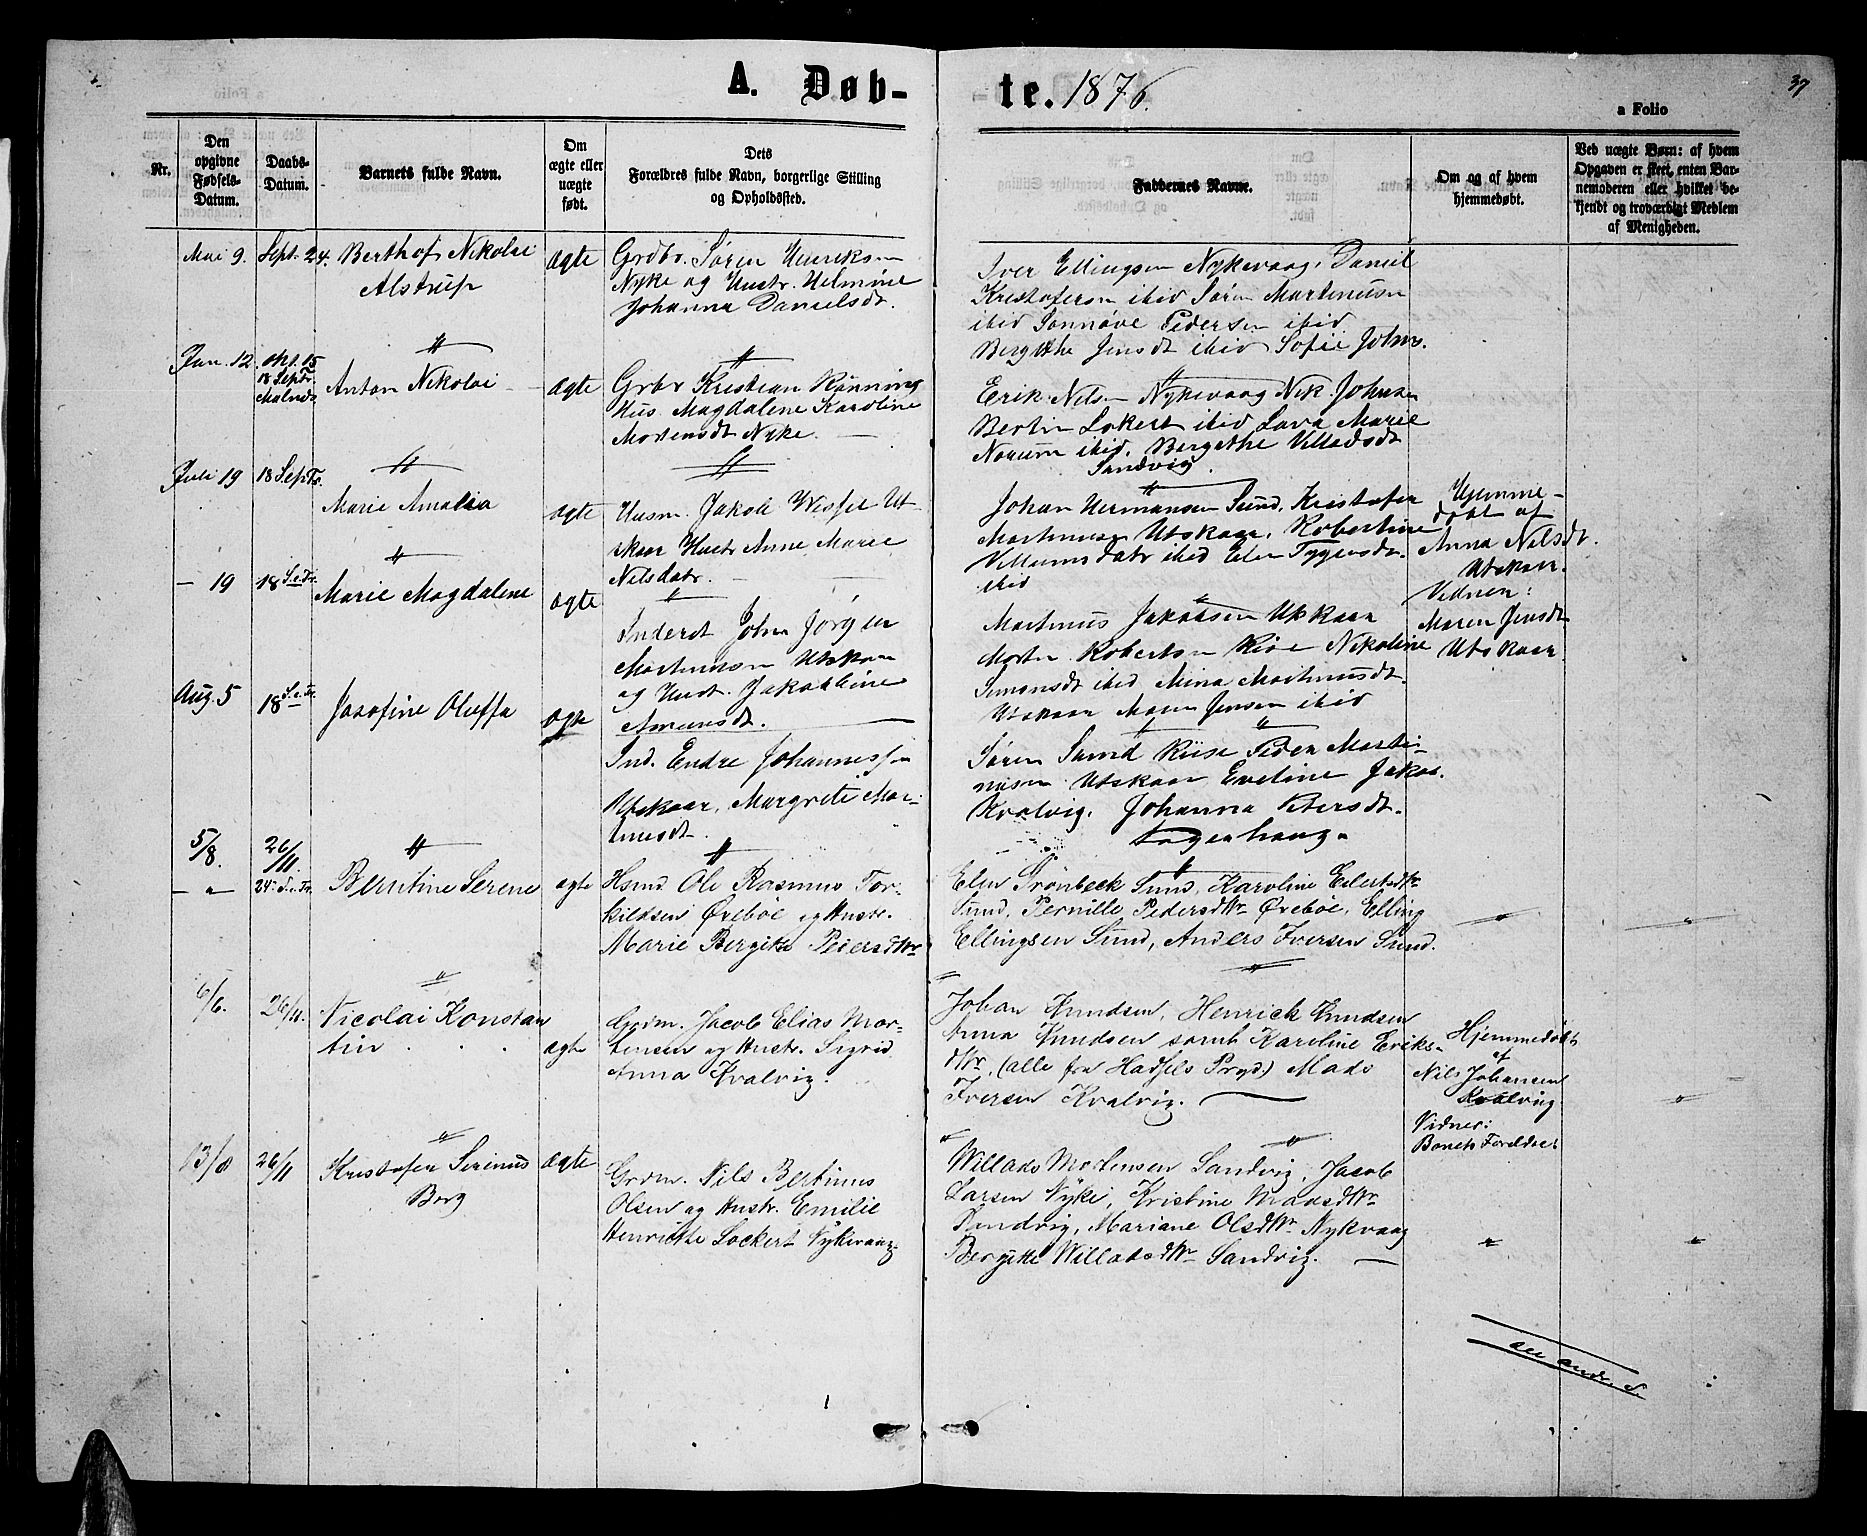 A. Døb-
te. 1876.
37
a Folio
Nr.
Den
opgivne
Fødsels-
Datum.
Daabs-
Datum.
Barnets fulde Navn.
Om
ægte eller
uægte
født.
Dets
Forældres fulde Navn, borgerlige Stilling
og Opholdssted.
Faddernes Navne.
Om og af hvem
hjemmedøbt.
Ved uægte Børn: af hvem
Opgaven er skeet, enten Bar-
nemoderen eller hvilket be-
kjendt og troværdigt Medlem
af Menigheden.
Mai 9.
Sept. 24.
Berthof Nikolai
Alstrup
ægte
Grdbr. Søren Henriksen
Nyke og Hustr. Helmine
Johanna Danielsdt.
Iver Ellingsen Nykvaag. Daniel
Kristofersen ibid Søren Martinusn
ibid Sonnøve Pedersen ibid
Bergithe Jensdt ibid Sofie Johns.
Jan. 12.
okt. 15
18 Septr.
Malnes
Anton Nikolai
ægte
Grbr Kristian Rønning
Hus. Magdalene Karoline
Mortensdt Nyke.
Erik Nilsen Nykevaag Nik Johnsen
Bertin Lokert ibid Lava Marie
Norum ibid. Bergithe Villadsdt
Sandvig.
Juli 19
18 Septr.
Marie Amalia
ægte
Husm. Jakob Wessel Ut-
skaar Hustr Anne Marie
Nilsdatr.
Johan Hermansen Sund, Kristofer
Martinusen Utskaar. Robertine
Villumsdatr ibid Elen Tygesdt.
ibid
Hjemme-
døbt af
Anna Nilsdt.
Utskaar.
Vidner:
Maren Jensdt
Utskaar
– 19
18 S.e.Tr.
Marie Magdalene
ægte
Inderst Johan Jørgen
Martinusen Utskaar
og Hustr. Jakobbine
Amunsdt.
Martinus Jakobsen Utskaar
Morten Robertsen Riise Nikoline
Simonsdt ibid Mina Martinusdt.
Utskaar Maren Jensen ibid
Aug. 5
18 S.e.Tr.
Josofine Oluffa
ægte
Ind. Endre Johannessen
Utskaar, Margrete Mar-
tinusdt.
Søren Sund Riise Peder Marti-
nusen Utskaar Eveline Jakobs.
Kvalvig. Johanna Petersdt.
5/8.
26/11.
– " –
24 S.e.Tr.
Berntine Serene
ægte
Hsmd. Ole Rasmus Tor-
kildsen Ørebøe og Hustr.
Marie Bergitte Pedersdtr
Elen Trønbeck Sund, Karoline Eilertsdtr
Sund, Pernille Pedersdtr Ørebøe, Elling
Ellingsen Sund, Anders Iversen Sund.
6/6.
26/11.
Nicolai Konstan
tin
ægte
Grdm. Jacob Elias Mor-
tensen og Hustr. Sigrid
Anna Kvalvig.
Johan Knudsen, Henrick Knudsen
Anna Knudsen samt Karoline Eriks-
dtr. (alle fra Hadsels Prgd.) Mads
Iversen Kvalvig.
Hjemmedøbt
af
Nils Johansen
Kvalvig
Vidner:
Barnets Foreldre
13/8
26/11
Kristofer Serinus
Borg
ægte
Grdm. Nils Bertinus
Olsen og Hustr. Emilie
Henriette Lockert Nykevaag.
Willads Mortensen Sandvig, Jacob
Larsen Nyke, Kristine Madsdtr
Sandvig, Mariane Olsdtr Nykvaag
Bergitte Willadsdtr Sandvig.